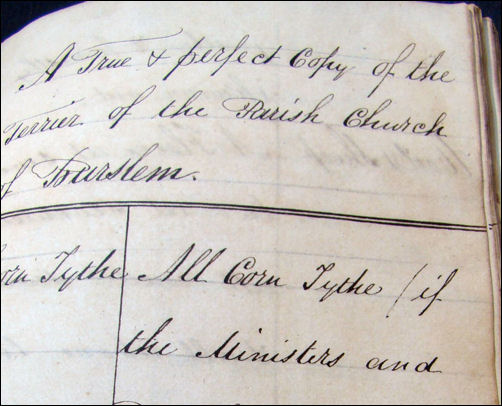 A True & perfect Copy of the
Terrier of the Parish Church
of Burslem.
Corn Tythe
All Corn Tythe / if
the Ministers and